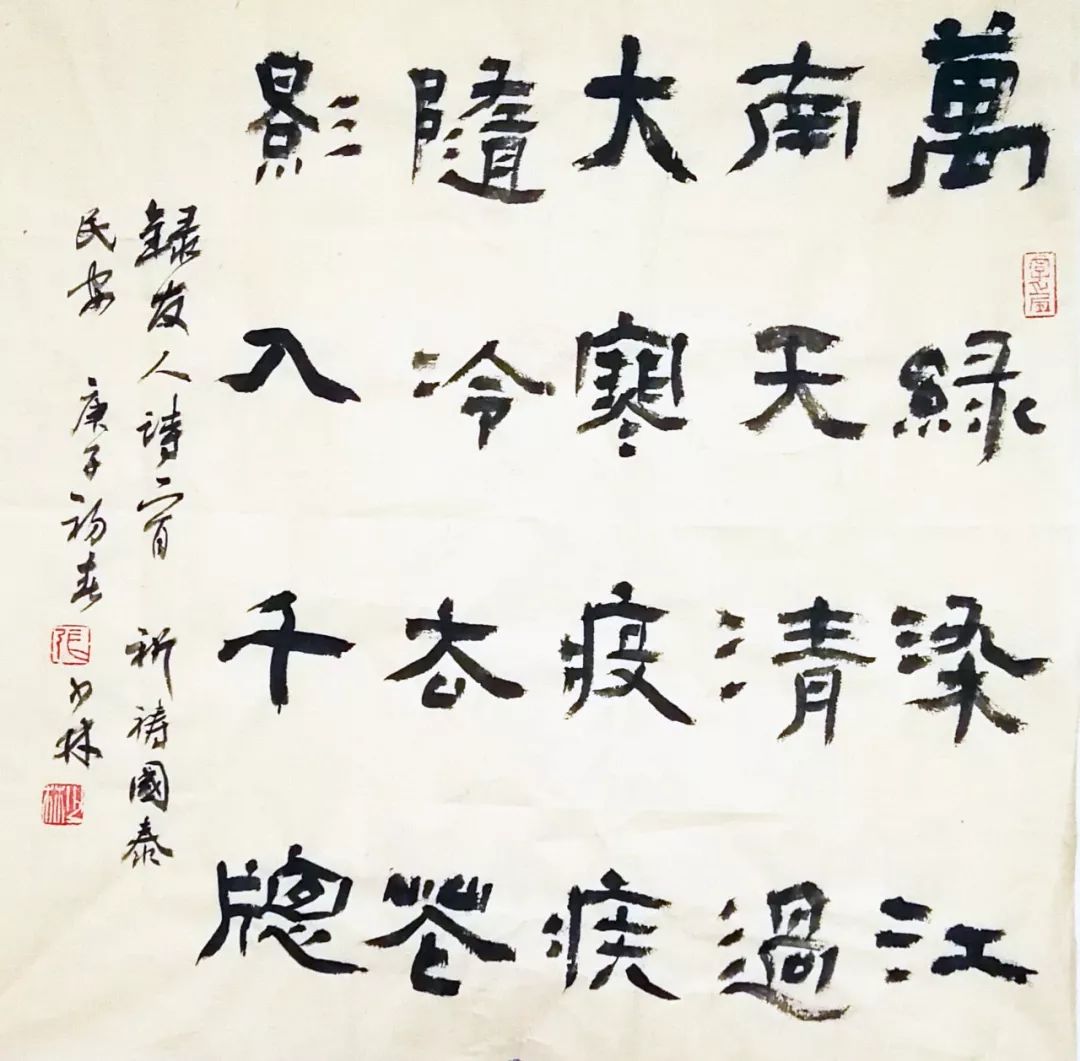 萬緑染江
南天清過
大寒疫疾
隨冷去花
影入千牕
録友人詩一首 祈禱國泰
民安 庚子初春 張 少林
少林